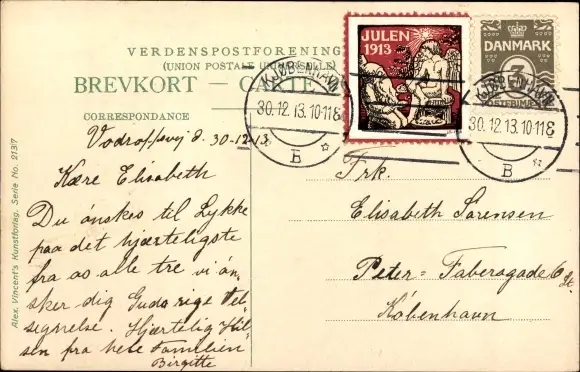 VERDENSPOSTFORENING
(UNION POSTALE UNIVERSELLE)
BREVKORT — CARTE
CORRESPONDANCE
JULEN
1913
DANMARK
2
POSTFRIM.
KJØBENHAVN
30.12.13.10-11 8
B
KJØBENHAVN
30.12.13.10-11 8
B
Vodroffsvej 8. 30-12-13.
Kære Elisabeth
Du ønskes til Lykke
paa det hjærteligste
fra os alle tre vi øn-
sker dig Guds rige Vel-
signelse. Hjærtelig Hil-
sen fra hele Familien
Birgitte
Frk.
Elisabeth Sørensen
Peter = Faberagade 6
København
Alex. Vincent's Kunstforlag. Serie No. 2137